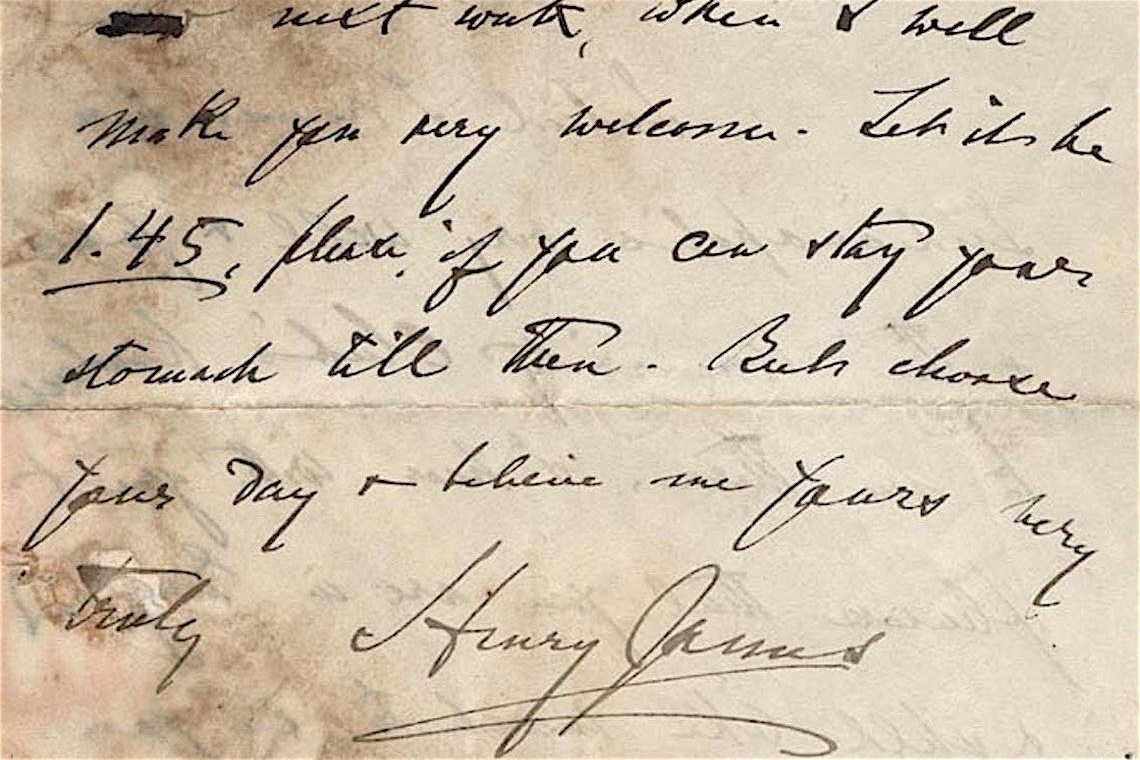 next week, when I will
make you very welcome. Let it be
1.45, please, if you can stay your
stomach till then. But choose
your day & believe me yours very
truly Henry James